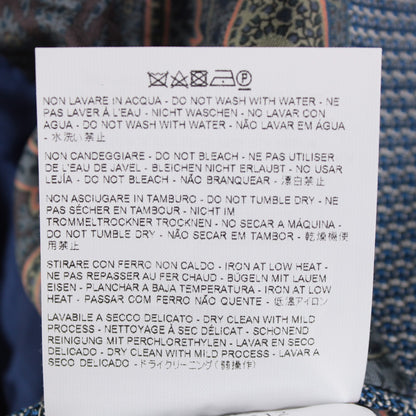 NON LAVARE IN ACQUA - DO NOT WASH WITH WATER - NE
PAS LAVER À L'EAU - NICHT WASCHEN - NO LAVAR CON
AGUA - DO NOT WASH WITH WATER - NÃO LAVAR EM ÁGUA
- 水洗い禁止
NON CANDEGGIARE - DO NOT BLEACH - NE PAS UTILISER
DE L'EAU DE JAVEL - BLEICHEN NICHT ERLAUBT - NO USAR
LEJÍA - DO NOT BLEACH - NÃO BRANQUEAR - 漂白禁止
NON ASCIUGARE IN TAMBURO - DO NOT TUMBLE DRY - NE
PAS SÉCHER EN TAMBOUR - NICHT IM
TROMMELTROCKNER TROCKNEN - NO SECAR A MÁQUINA -
DO NOT TUMBLE DRY - NÃO SECAR EM TAMBOR - 乾燥機使
用禁止
STIRARE CON FERRO NON CALDO - IRON AT LOW HEAT -
NE PAS REPASSER AU FER CHAUD - BÜGELN MIT LAUEM
EISEN - PLANCHAR A BAJA TEMPERATURA - IRON AT LOW
HEAT - PASSAR COM FERRO NÃO QUENTE - 低温アイロン
LAVABILE A SECCO DELICATO - DRY CLEAN WITH MILD
PROCESS - NETTOYAGE À SEC DÉLICAT - SCHONEND
REINIGUNG MIT PERCHLORETHYLEN - LAVAR EN SECO
DELICADO - DRY CLEAN WITH MILD PROCESS - LAVAR A
SECO DELICADO - ドライクリーニング(弱操作)